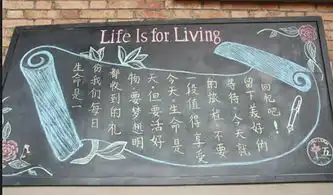 Life Is for Living
生命是一
份我们每日
都收到的礼
物,要梦想明
天,但要活好
今天.生命是
一段值得享受
的旅程,不要
等待,今天就
留下美好的
回忆吧!
五